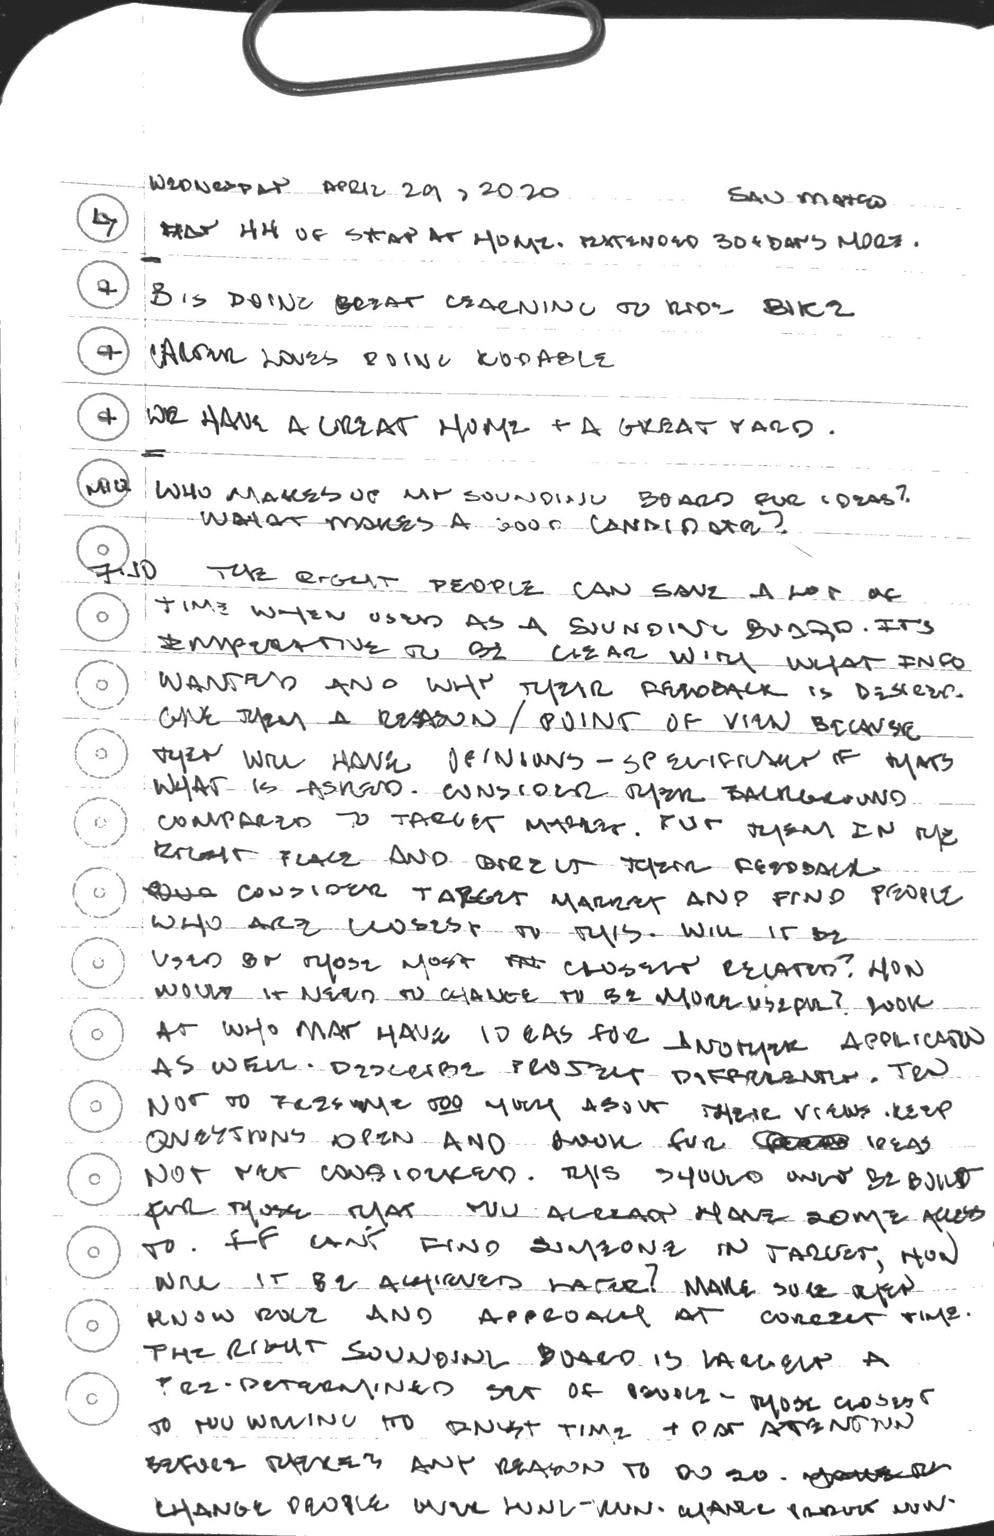 WEDNESDAY APRIL 29, 2020 SAN MATEO
DAY 44 OF STAY AT HOME. EXTENDED 30 DAYS MORE.
B IS DOING GREAT LEARNING TO RIDE BIKE
CARTER LOVES DOING KODABLE
WE HAVE A GREAT HOME + A GREAT YARD.
WHO MAKES UP MY SOUNDING BOARD FOR IDEAS?
WHAT MAKES A GOOD CANDIDATE?
7:10 THE RIGHT PEOPLE CAN SAVE A LOT OF
TIME WHEN USED AS A SOUNDING BOARD. ITS
IMPERATIVE TO BE CLEAR WITH WHAT INFO
WANTED AND WHY THEIR FEEDBACK IS DESIRED.
GIVE THEM A REASON / POINT OF VIEW BECAUSE
THEY WILL HAVE OPINIONS - SPECIFICALLY IF THATS
WHAT IS ASKED. CONSIDER THEIR BACKGROUND
COMPARED TO TARGET MARKET. PUT THEM IN THE
RIGHT PLACE AND DIRECT THEIR FEEDBACK.
CONSIDER TARGET MARKET AND FIND PEOPLE
WHO ARE CLOSEST TO THIS. WILL IT BE
USED BY THOSE MOST CLOSELY RELATED? HOW
WOULD IT NEED TO CHANGE TO BE MORE USEFUL? LOOK
AT WHO MAY HAVE IDEAS FOR ANOTHER APPLICATION
AS WELL. DESCRIBE PROJECT DIFFERENTLY. TRY
NOT TO PRESUME TOO MUCH ABOUT THEIR VIEWS. KEEP
QUESTIONS OPEN AND LOOK FOR IDEAS
NOT YET CONSIDERED. THIS SHOULD ONLY BE BUILT
FOR THOSE THAT YOU ALREADY HAVE SOME ACCESS
TO. IF CAN'T FIND SOMEONE IN TARGET, HOW
WILL IT BE ACHIEVED LATER? MAKE SURE THEY
KNOW ROLE AND APPROACH AT CORRECT TIME.
THE RIGHT SOUNDING BOARD IS LARGELY A
PRE-DETERMINED SET OF PEOPLE - THOSE CLOSEST
TO YOU WILLING TO INVEST TIME + PAY ATTENTION
BEFORE THERE'S ANY REASON TO DO SO.
CHANGE PEOPLE OVER LONG-RUN. CHANGE PRODUCT NOW.